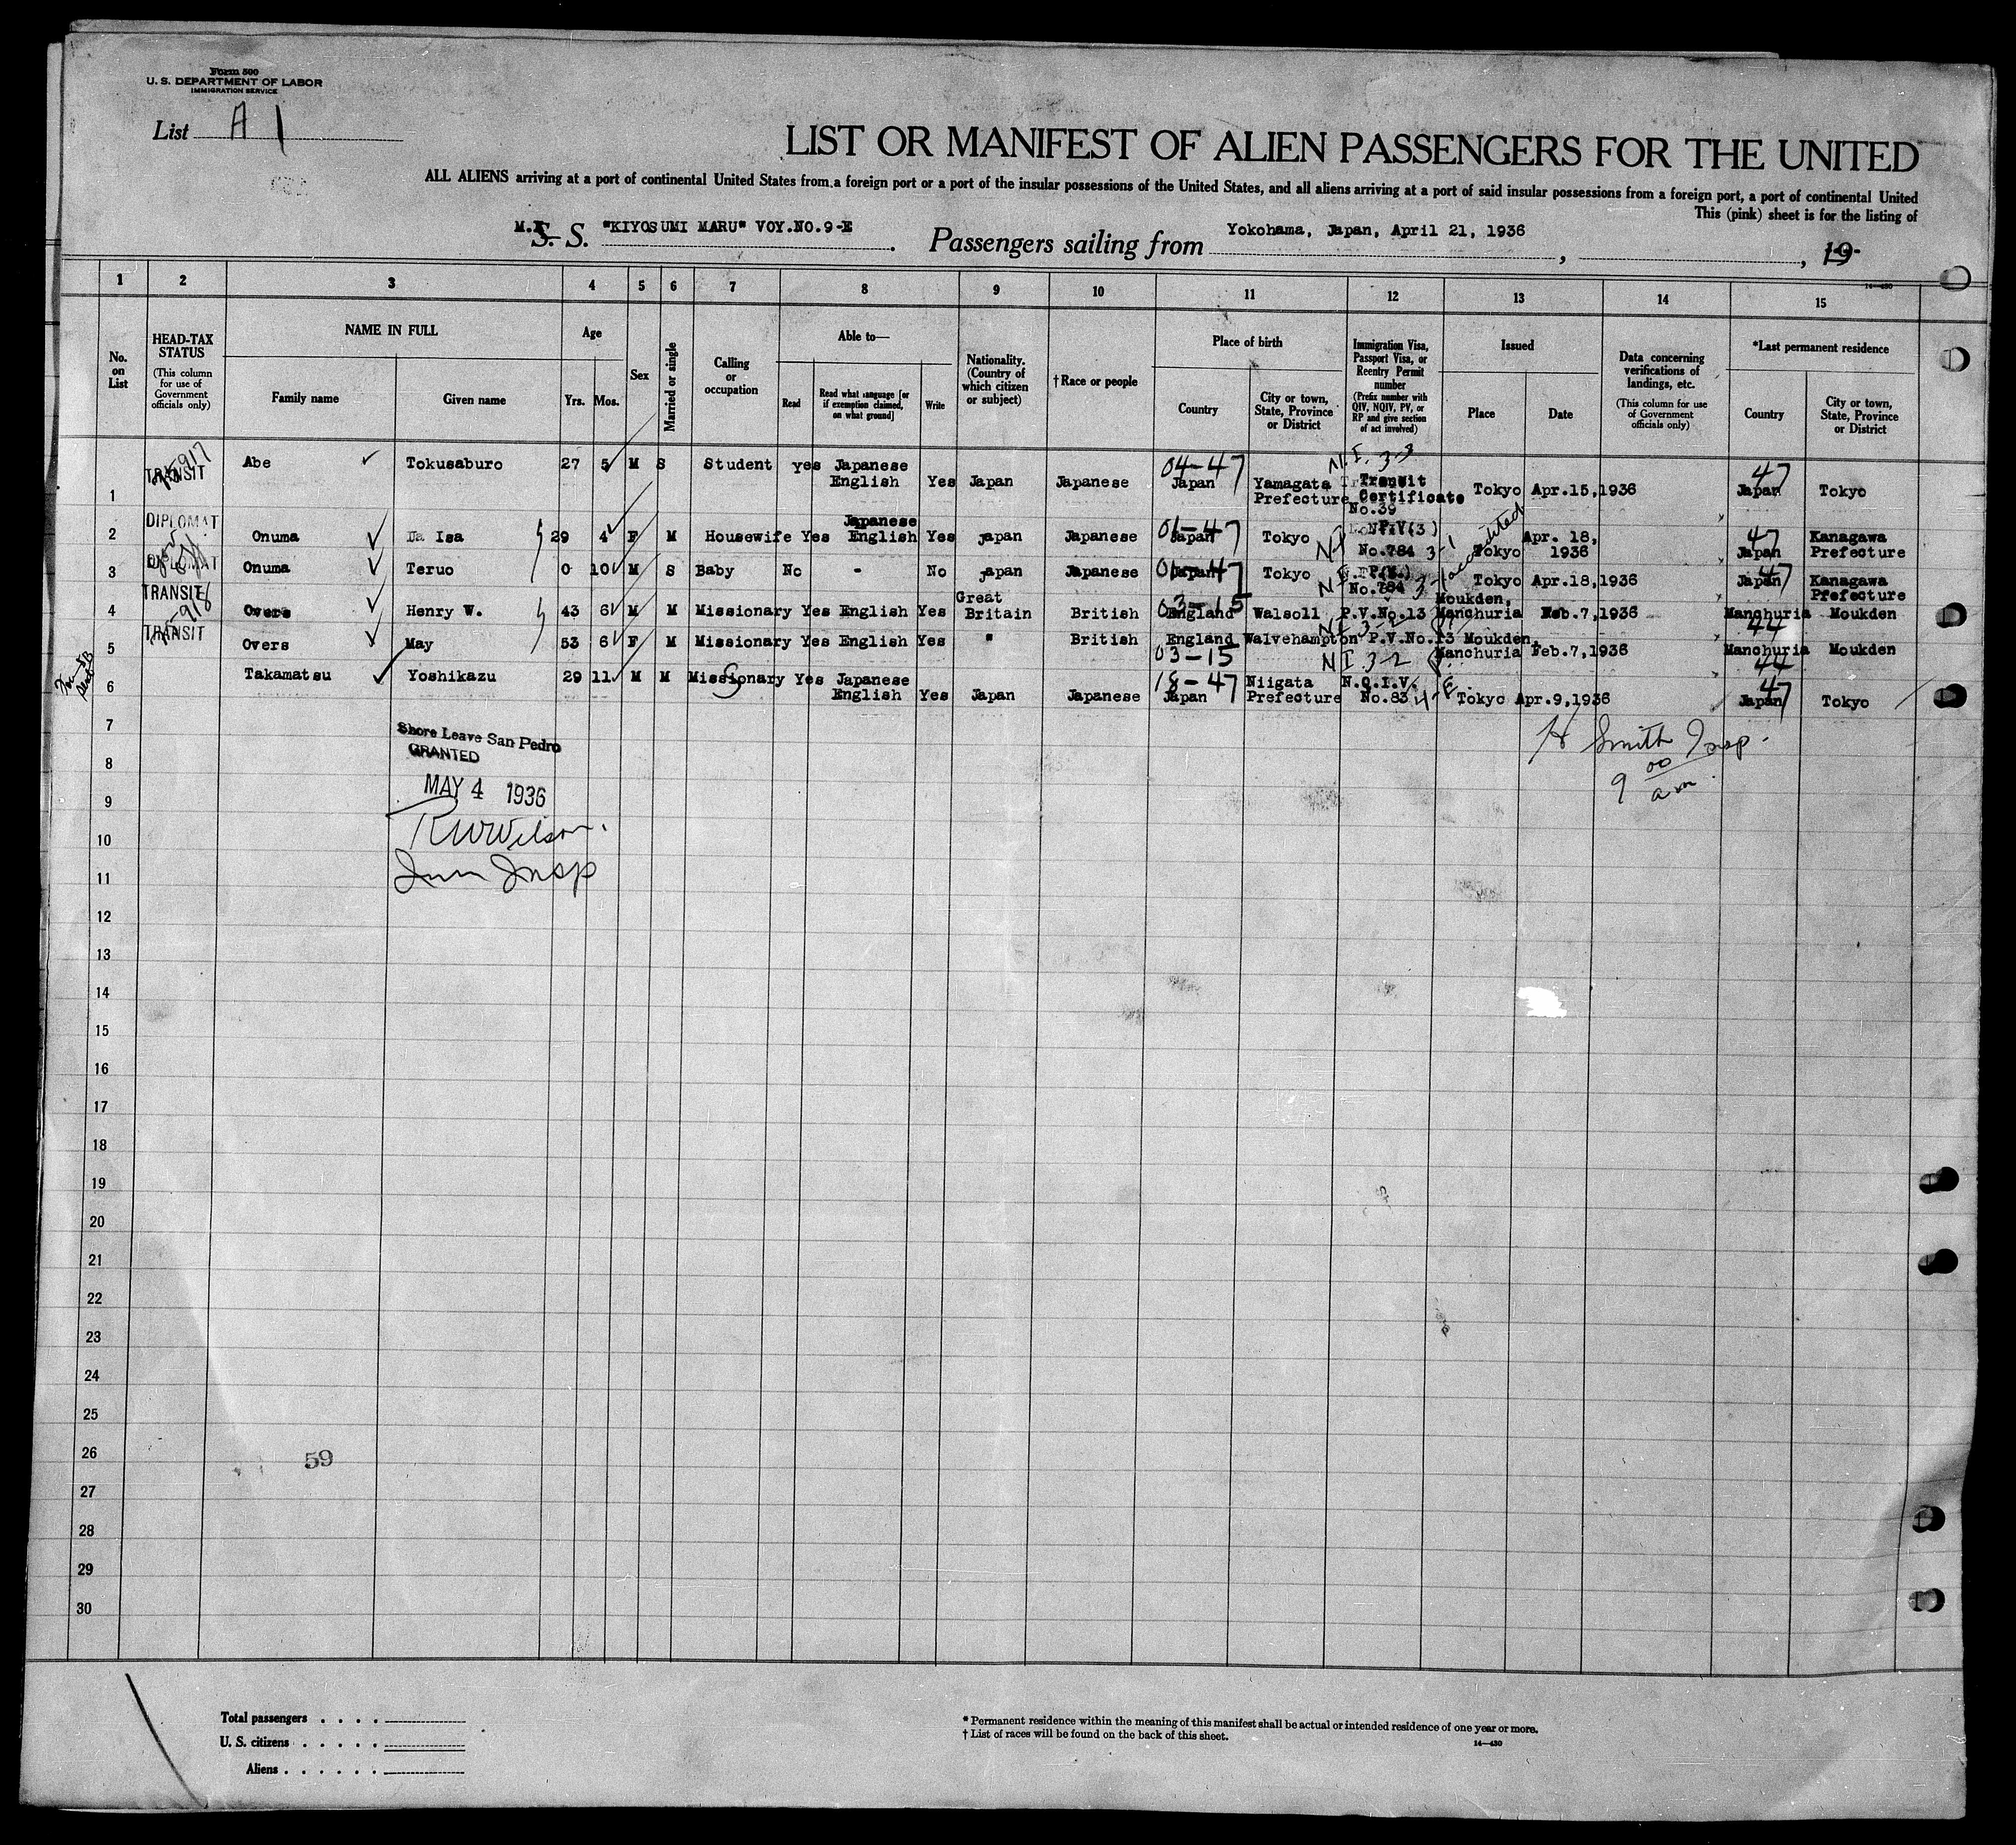 Form 500
U. S. DEPARTMENT OF LABOR
IMMIGRATION SERVICE
List A 1
LIST OR MANIFEST OF ALIEN PASSENGERS FOR THE UNITED
ALL ALIENS arriving at a port of continental United States from a foreign port or a port of the insular possessions of the United States, and all aliens arriving at a port of said insular possessions from a foreign port, a port of continental United
This (pink) sheet is for the listing of
M. S. S. "KIYOSUMI MARU" VOY.NO.9-E. Passengers sailing from Yokohama, Japan, April 21, 1936, , 19
14—430
1 2 3 4 5 6 7 8 9 10 11 12 13 14 15
No. on List
HEAD-TAX STATUS
(This column for use of Government officials only)
NAME IN FULL
Family name Given name
Age
Yrs. Mos.
Sex
Married or single
Calling or occupation
Able to—
Read Read what language [or if exemption claimed, on what ground] Write
Nationality. (Country of which citizen or subject)
†Race or people
Place of birth
Country City or town, State, Province or District
Immigration Visa, Passport Visa, or Reentry Permit number
(Prefix number with QIV, NQIV, PV, or RP and give section of act involved)
Issued
Place Date
Data concerning verifications of landings, etc.
(This column for use of Government officials only)
*Last permanent residence
Country City or town, State, Province or District
1 TRANSIT Abe Tokusaburo 27 5 M S Student yes Japanese English Yes Japan Japanese 04-47 Japan Yamagata Prefecture N.I. 3-3 Transit Certificate No.39 Tokyo Apr.15,1936 47 Japan Tokyo
2 DIPLOMAT Onuma Isa 29 4 F M Housewife Yes Japanese English Yes japan Japanese 01-47 Japan Tokyo P.V(3) No.784 3-1 Tokyo Apr. 18, 1936 47 Japan Kanagawa Prefecture
3 DIPLOMAT Onuma Teruo 0 10 M S Baby No - No japan Japanese Japan Tokyo No.784 Tokyo Apr.18,1936 47 Japan Kanagawa Prefecture
4 TRANSIT Overs Henry W. 43 6 M M Missionary Yes English Yes Great Britain British 03-15 England Walsoll P.V.No.13 Moukden, Manchuria Feb.7,1936 Manchuria 44 Moukden
5 TRANSIT Overs May 53 6 F M Missionary Yes English Yes " British England 03-15 Walvehampton P.V.No.13 NI 3-2 Moukden, Manchuria Feb.7,1936 Manchuria 44 Moukden
6 Takamatsu Yoshikazu 29 11 M M Missionary Yes Japanese English Yes Japan Japanese 18-47 Japan Niigata Prefecture N.Q.I.V. No.83 4-E Tokyo Apr.9,1936 47 Japan Tokyo
7
8
9
10
11
12
13
14
15
16
17
18
19
20
21
22
23
24
25
26
27
28
29
30
Shore Leave San Pedro
GRANTED
MAY 4 1936
RWWilson.
Imm Insp
H Smith Insp.
9 00 am.
59
Total passengers
U. S. citizens
Aliens
* Permanent residence within the meaning of this manifest shall be actual or intended residence of one year or more.
† List of races will be found on the back of this sheet.
14—430